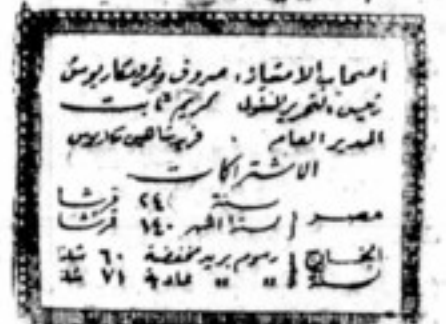 أصحاب الامتياز، صروف ونمر ومكاريوس
رئيس التحرير المسئول كريم ثابت
المدير العام . فريد شاهين مكاريوس
الاشتراكات
مصر سنة ٢٤٠ قرشا
ستة اشهر ١٤٠ قرشا
الخارج رسوم بريد مخفضة ٦٠ شلنا
سنة " " عادية ٧١ شلنا